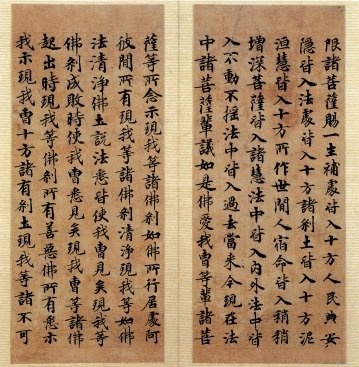 限諸菩薩賜一生補處皆入十方人民典安
隱皆入法處皆入十方諸刹土皆入十方泥
洹慧皆入十方所作世間人宿命皆入稍稍
增深菩薩皆入諸慧法中皆入內外法中皆
入不動不搖法中皆入過去當來今現在法
中諸菩薩輩議如是佛愛我曹等輩諸菩
薩等所念示現我等諸佛刹如佛所行居處
彼間所有現我等諸佛刹清淨現我等如佛
法清淨佛土説法悉皆使我曹見矣現我等
佛刹成敗時使我曹悉見矣現我曹等諸佛
起出時現我等佛刹所有善惡佛所有悉示
我示現我曹十方諸有刹土現我等諸不可